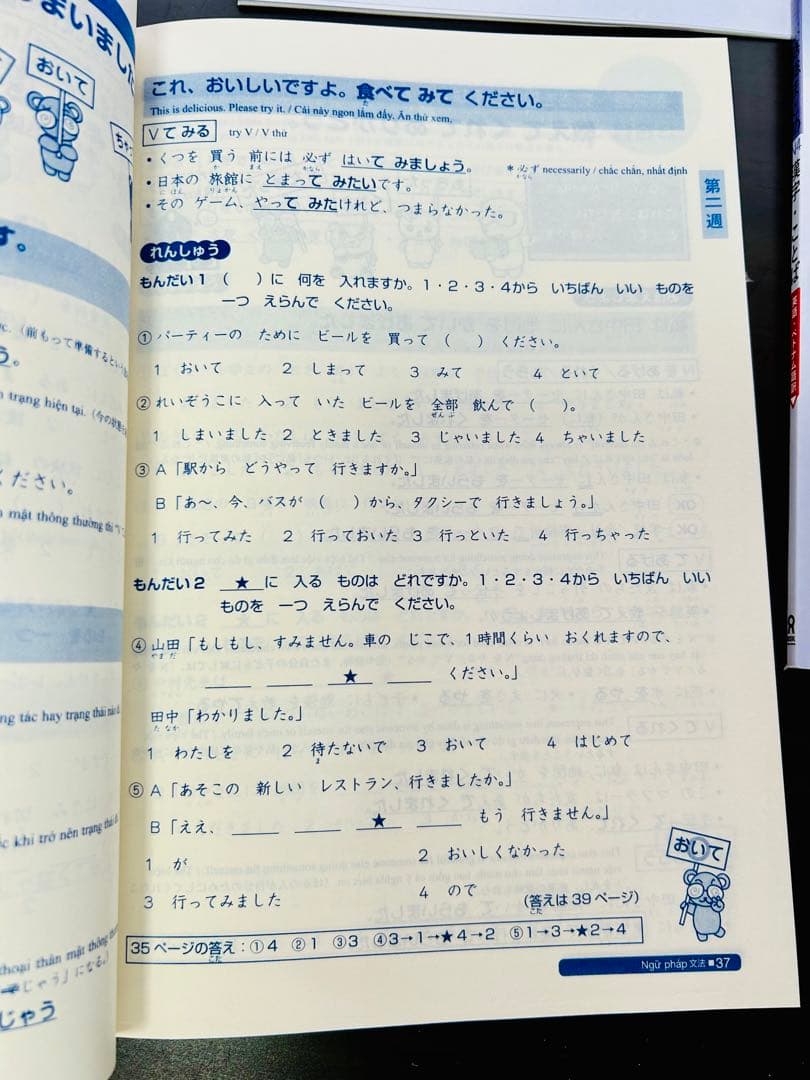 まいました
おいて
ちゃ
す。
う。
trạng hiện tại.
ください。
じゃう
これ、おいしいですよ。食べて みて ください。
た
This is delicious. Please try it. / Cái này ngon lắm đấy. Ăn thử xem.
Vて みる try V / V thử
・くつを 買う 前には 必ず はいて みましょう。 *必ず necessarily / chắc chắn, nhất định
か まえ かなら かなら
・日本の 旅館に とまって みたいです。
にほん りょかん
・その ゲーム、やって みたけれど、つまらなかった。
第二週
れんしゅう
もんだい1 ( )に 何を 入れますか。1・2・3・4から いちばん いい ものを
一つ えらんで ください。
① パーティーの ために ビールを 買って ( ) ください。
1 おいて 2 しまって 3 みて 4 といて
② れいぞうこに 入って いた ビールを 全部 飲んで ( )。
ぜんぶ
1 しまいました 2 ときました 3 じゃいました 4 ちゃいました
③ A「駅から どうやって 行きますか。」
B「あ～、今、バスが ( )から、タクシーで 行きましょう。」
1 行ってみた 2 行っておいた 3 行っといた 4 行っちゃった
もんだい2 ★ に 入る ものは どれですか。1・2・3・4から いちばん いい
ものを 一つ えらんで ください。
④ 山田「もしもし、すみません。車の じこで、1時間くらい おくれますので、
やまだ
____ ____ __★__ ____ ください。」
田中「わかりました。」
たなか
1 わたしを 2 待たないで 3 おいて 4 はじめて
ま
⑤ A「あそこの 新しい レストラン、行きましたか。」
B「ええ、____ ____ __★__ ____ もう 行きません。」
1 が 2 おいしくなかった
3 行ってみました 4 ので
(答えは 39 ページ)
こた
おいて
35ページの答え：①4 ②1 ③3 ④3→1→★4→2 ⑤1→3→★2→4
こた
Ngữ pháp 文法 ■37
漢字・ことば
英語・ベトナム語訳